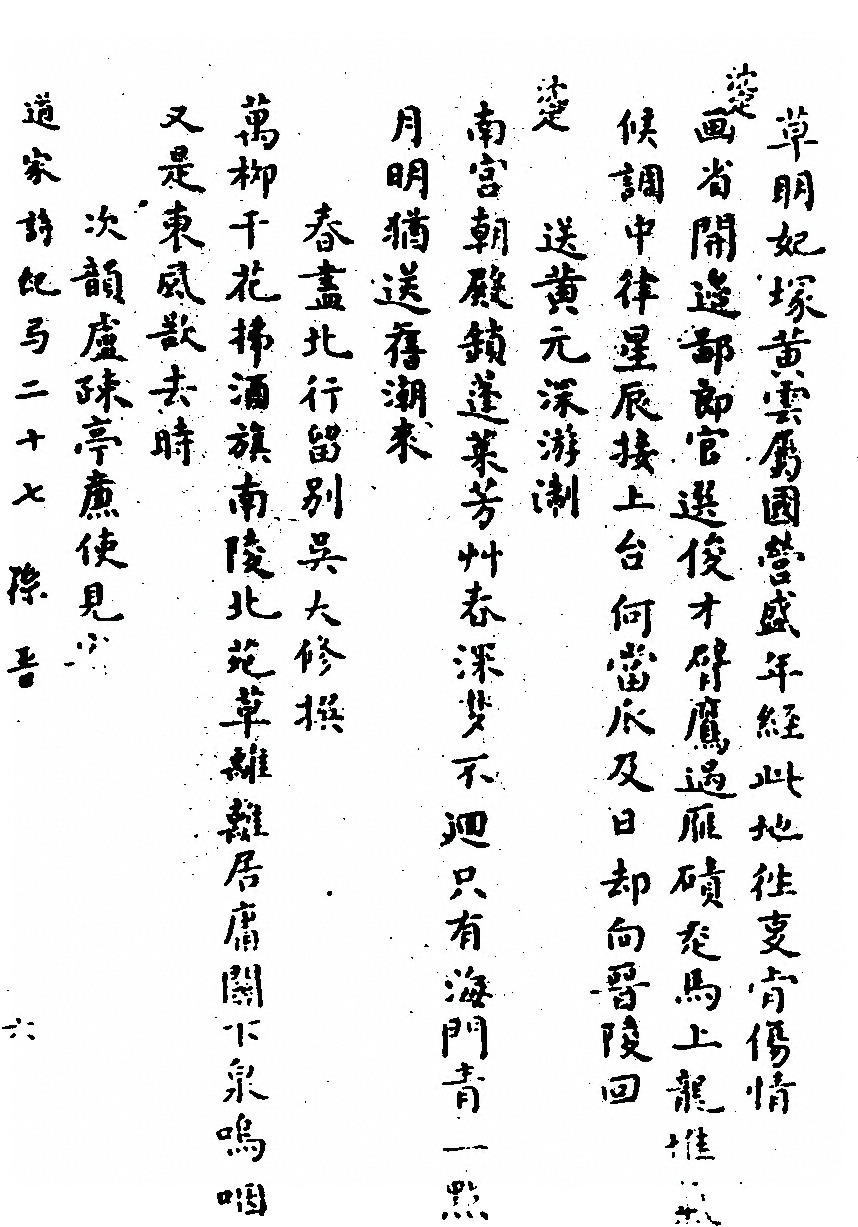 草明妃塚黃雲屬國營盛年經此地徃叓肯傷情
画省開邉鄙郎官選俊才臂鷹過雁磧走馬上龍堆氣
候調中律星辰接上台何當瓜及日却向晋陵回
送黄元深游淛
南宮朝殿鎖蓬萊芳艸春深夢不迴只有海門青一點
月明猶送舊潮來
春盡北行留別吳大修撰
萬柳千花拂酒旗南陵北苑草離離居庸關下泉嗚咽
又是東風歇去時
次韻盧疎亭廉使見
道家詩紀弓二十七 孫晋
六